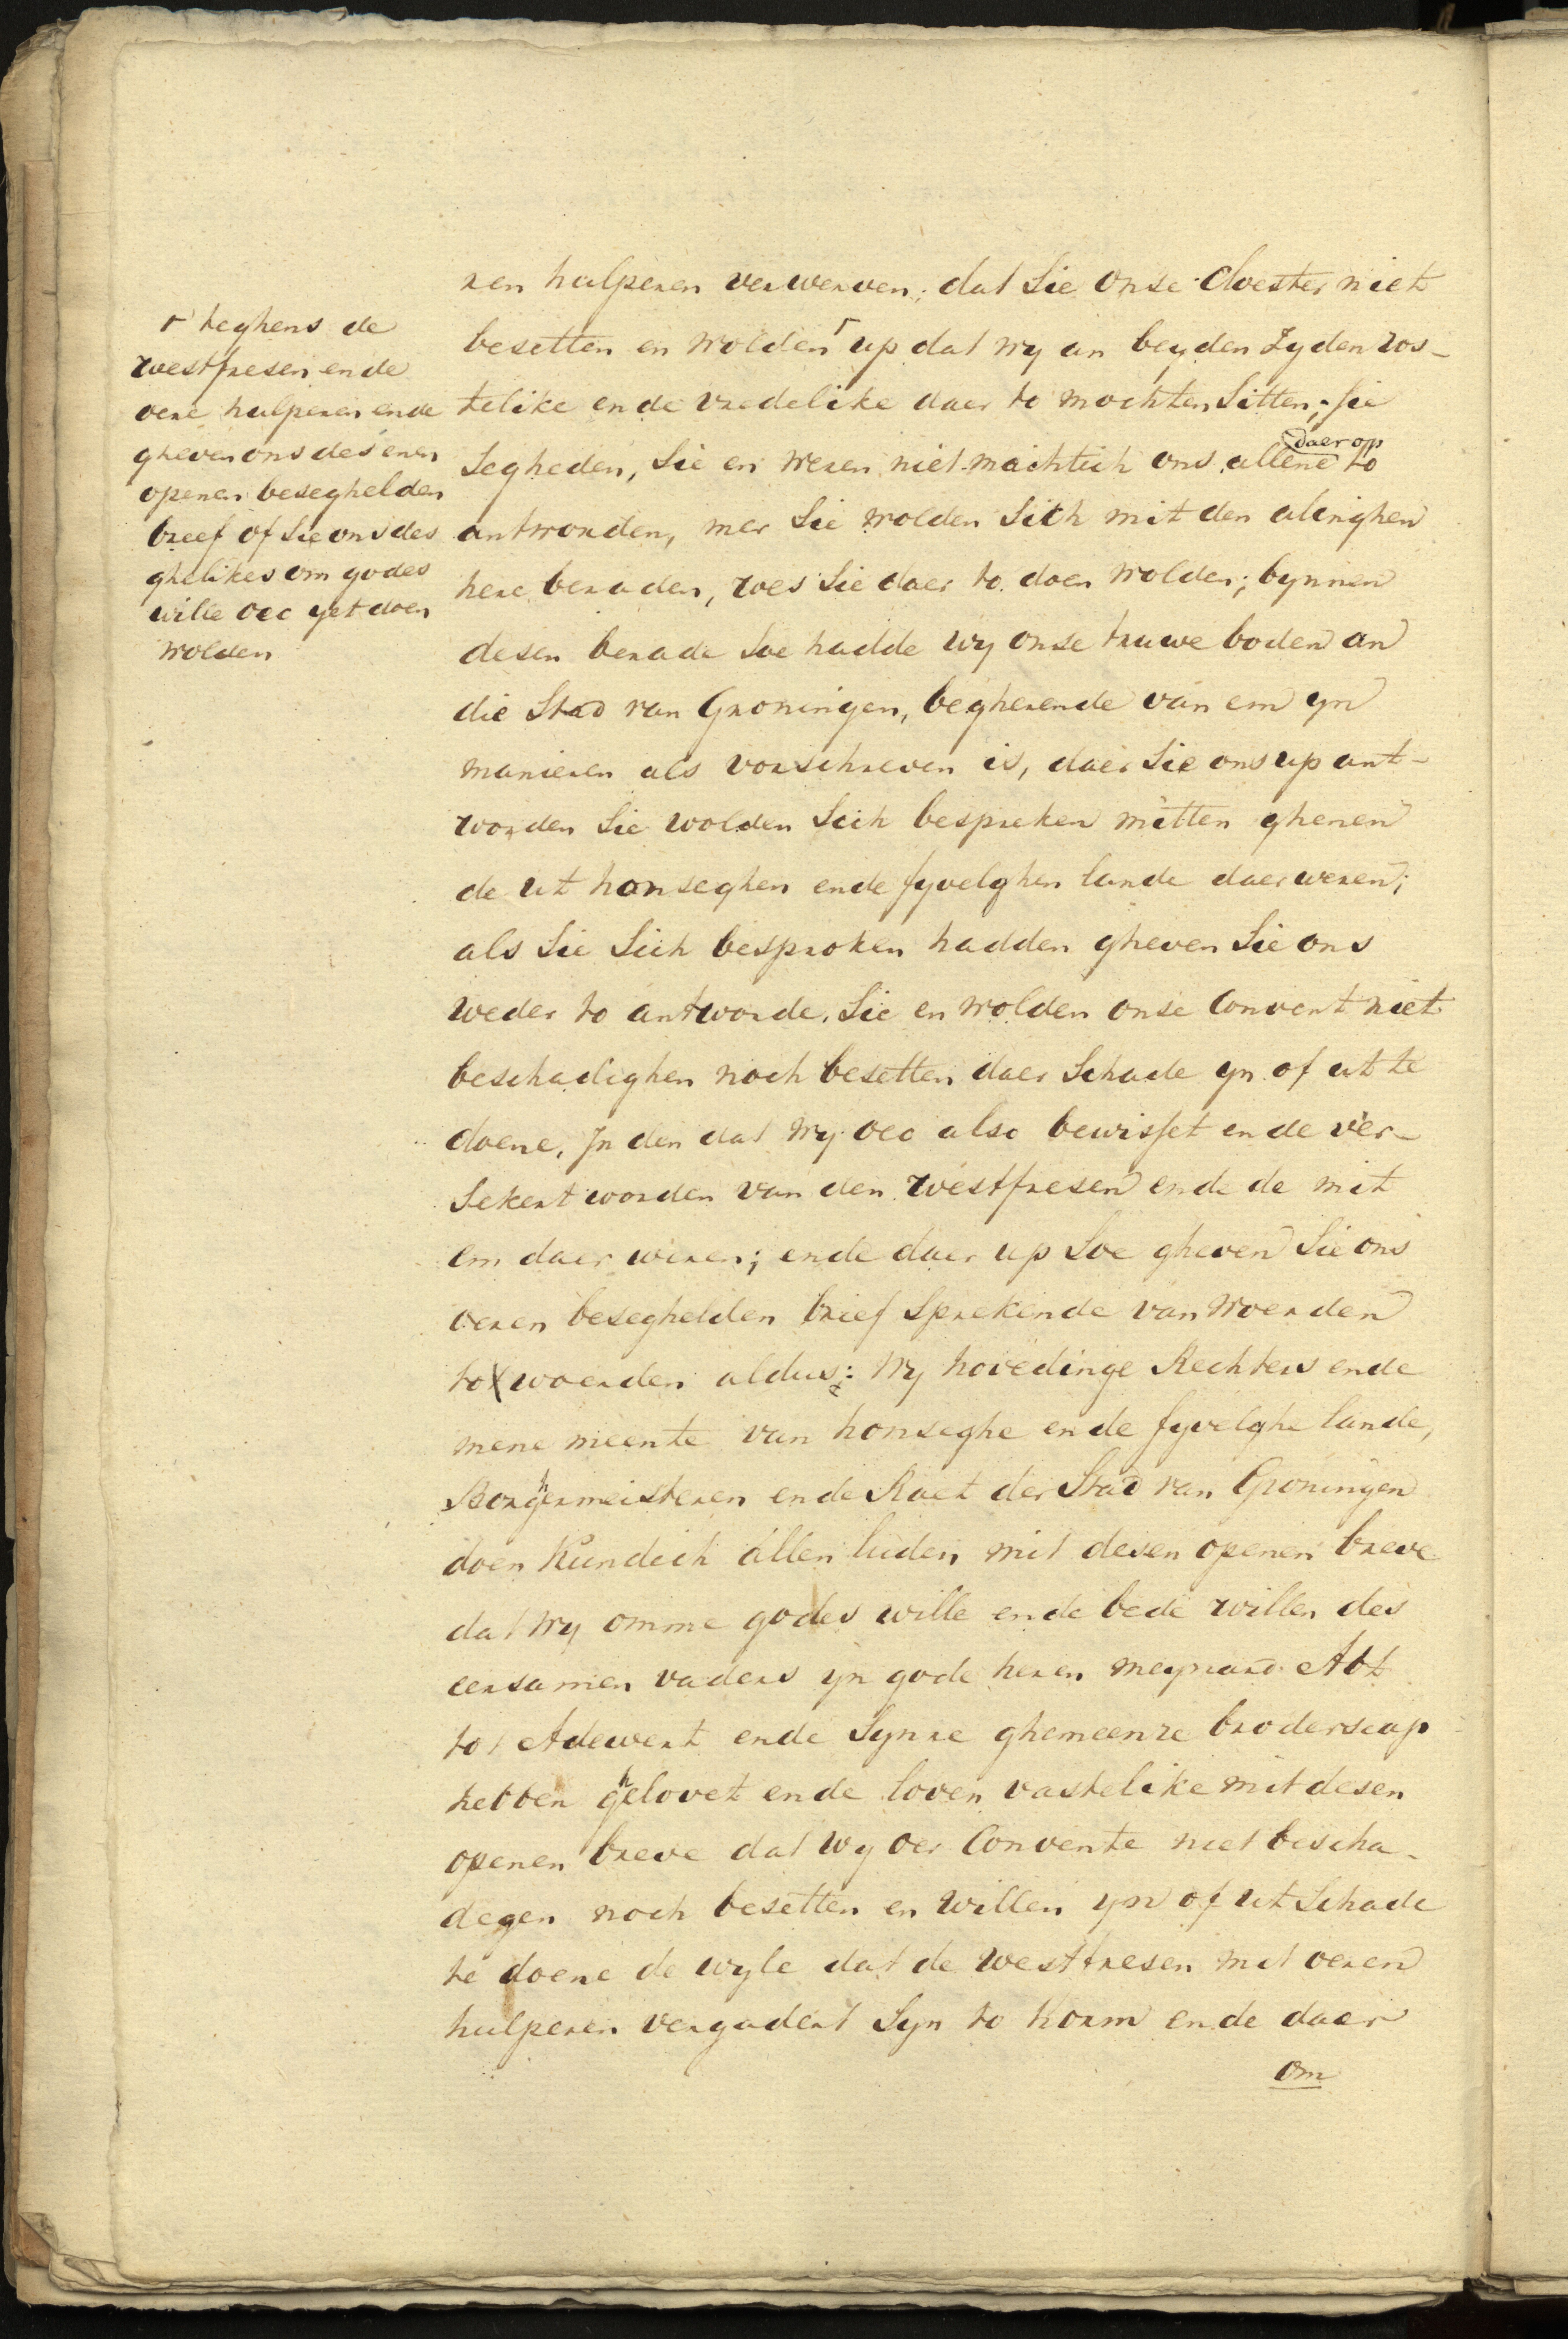 ren hulperen verwerven; dat Sie onse Cloester niet
besetten en wolden ┌ up dat wy an beyden Zyden ros-
telike ende vredelike daer to mochten Sitten; Sie
Segheden, Sie en weren niet machtich ons allene daer op to
antworden, mer Sie wolden Sich mit den alinghen
here beraden, wes Sie daer to doen wolden; bynnen
desen berade Soe hadde wy onse truwe boden an
die Stad van Groningen, begherende van em yn
manieren als vorschreven is, daer Sie ons up ant-
worden Sie wolden Sich bespreken mitten ghenen
de ut honseghen ende fyvelghen lande daer weren;
als Sie Sich besproken hadden gheven Sie ons
weder to antworde. Sie en wolden onse Convent niet
beschadighen noch besetten daer Schade yn of ut te
doene, In den dat wy oec also bewisset ende ver-
Sekert worden van den westfresen ende de mit
em daer weren; ende daer up Soe gheven Sie ons
oeren beseghelden brief Sprekende van woerden
to woerden aldus: Wy hovedinge Rechters ende
mene meente van honseghe ende fyvelghe lande,
Borghermeisteren ende Raet der Stad van Groningen
doen Kundich allen luden mit desen openen breve
dat wy omme godes wille ende bede willen des
eersamen vaders yn gode heren meynard Abt
tot Adewert ende Synre ghemeenre broderscap
hebben ghelovet ende loven vastelike mit desen
openen breve dat wy oer Convente niet bescha-
degen noch besetten en willen yn of ut Schade
te doene de wyle dat de westfresen mit oeren
hulperen vergadert Syn to Korm ende daer
om
┌ teghens de
westfresen ende
oere hulperen ende
gheven ons des enen
openen beseghelden
breef of Sie ons des
ghelikes om godes
wille oec yet doen
wolden